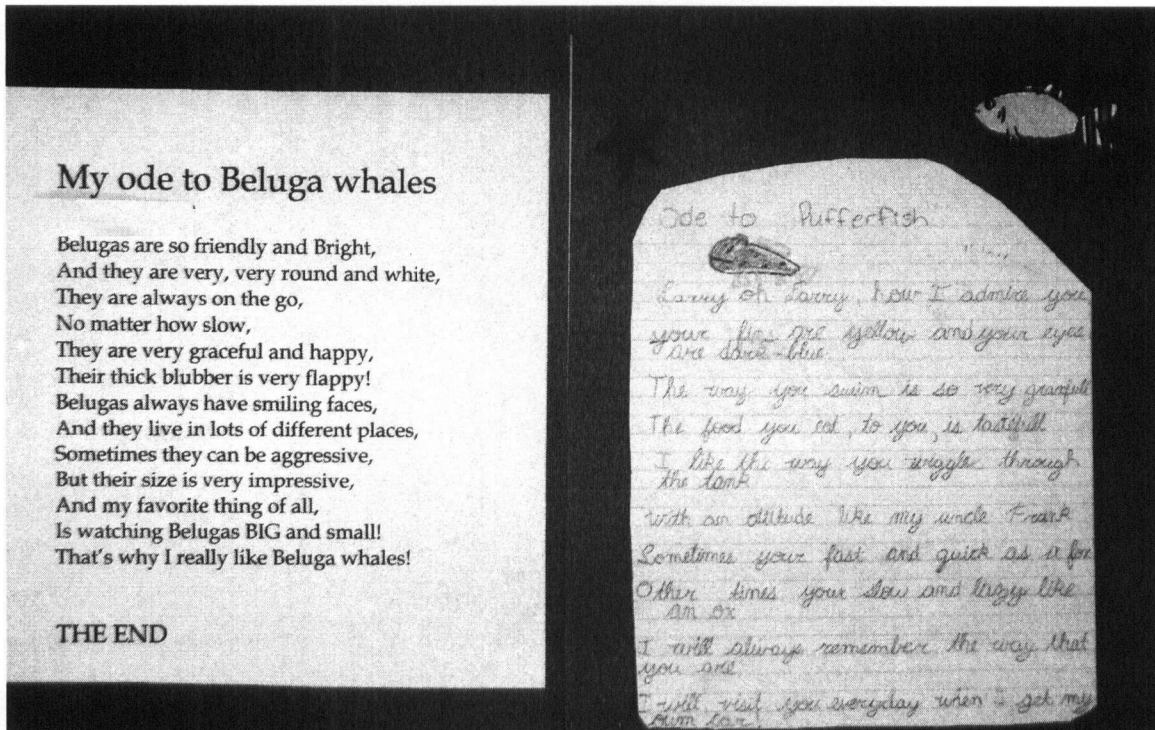 My ode to Beluga whales
Belugas are so friendly and Bright,
And they are very, very round and white,
They are always on the go,
No matter how slow,
They are very graceful and happy,
Their thick blubber is very flappy!
Belugas always have smiling faces,
And they live in lots of different places,
Sometimes they can be aggressive,
But their size is very impressive,
And my favorite thing of all,
Is watching Belugas BIG and small!
That's why I really like Beluga whales!
THE END
Ode to Pufferfish
Larry oh Larry, how I admire you
your fins are yellow and your eyes
are dark-blue.
The way you swim is so very
The food you eat, to you, is tastefull
I like the way you wiggle through
the tank
with an attitude like my uncle Frank
Sometimes your fast and quick as a fox
Other times your slow and lazy like
an ox
I will always remember the way that
you are
I will visit you everyday when I get my
own car